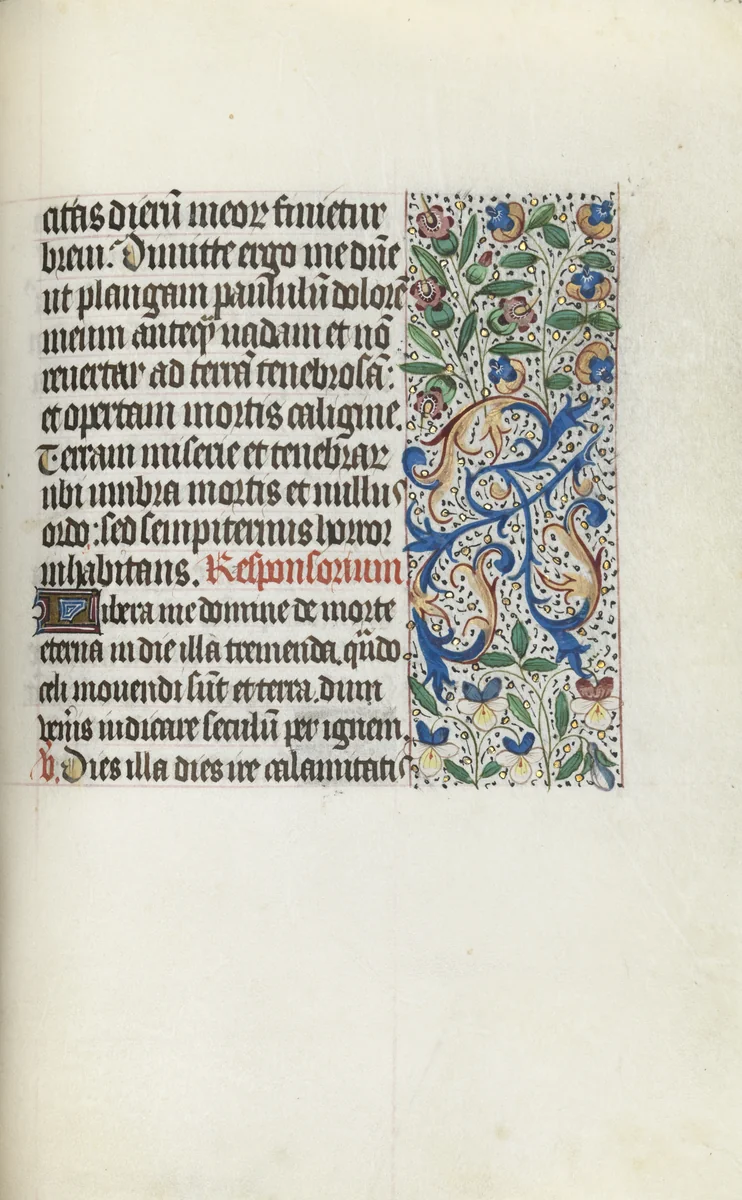 citas dierū meoꝝ finietur
breui? Dimitte ergo me dn̄e
ut plangam paululū dolorē
meum anteqȝ uadam et nō
reuertar ad terrā tenebrosā:
et opertam mortis caligine.
Terram miserie et tenebrar
ubi umbra mortis et nullus
ordo: sed sempiternus horror
inhabitans. Responsorium
Libera me domine de morte
eterna in die illa tremenda. qn̄do
celi mouendi sūt et terra. dum
veņis iudicare seculū per ignem.
V. Dies illa dies ire calamitatis